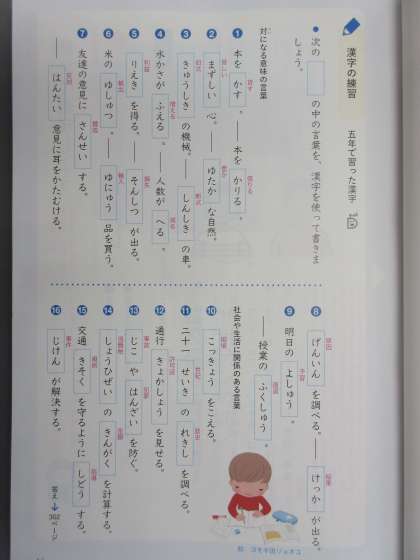 漢字の練習 五年で習った漢字
●次の□の中の言葉を、漢字を使って書きましょう。
対になる意味の言葉
1 本をかす。――本をかりる。
貸す 借りる
2 まずしい心。――ゆたかな自然。
貧しい 豊か
3 きゅうしきの機械。――しんしきの車。
旧式 新式
4 水かさがふえる。――人数がへる。
増える 減る
5 りえきを得る。――そんしつが出る。
利益 損失
6 米のゆしゅつ。――ゆにゅう品を買う。
輸出 輸入
7 友達の意見にさんせいする。
賛成
――はんたい意見に耳をかたむける。
反対
8 げんいんを調べる。――けっかが出る。
原因 結果
9 明日のよしゅう。
予習
――授業のふくしゅう。
復習
社会や生活に関係のある言葉
10 こっきょうをこえる。
国境
11 二十一せいきのれきしを調べる。
世紀 歴史
12 通行きょかしょうを見せる。
許可証
13 じこやはんざいを防ぐ。
事故 犯罪
14 しょうひぜいのきんがくを計算する。
消費税 金額
15 交通きそくを守るようにしどうする。
規則 指導
16 じけんが解決する。
事件
答え→302ページ